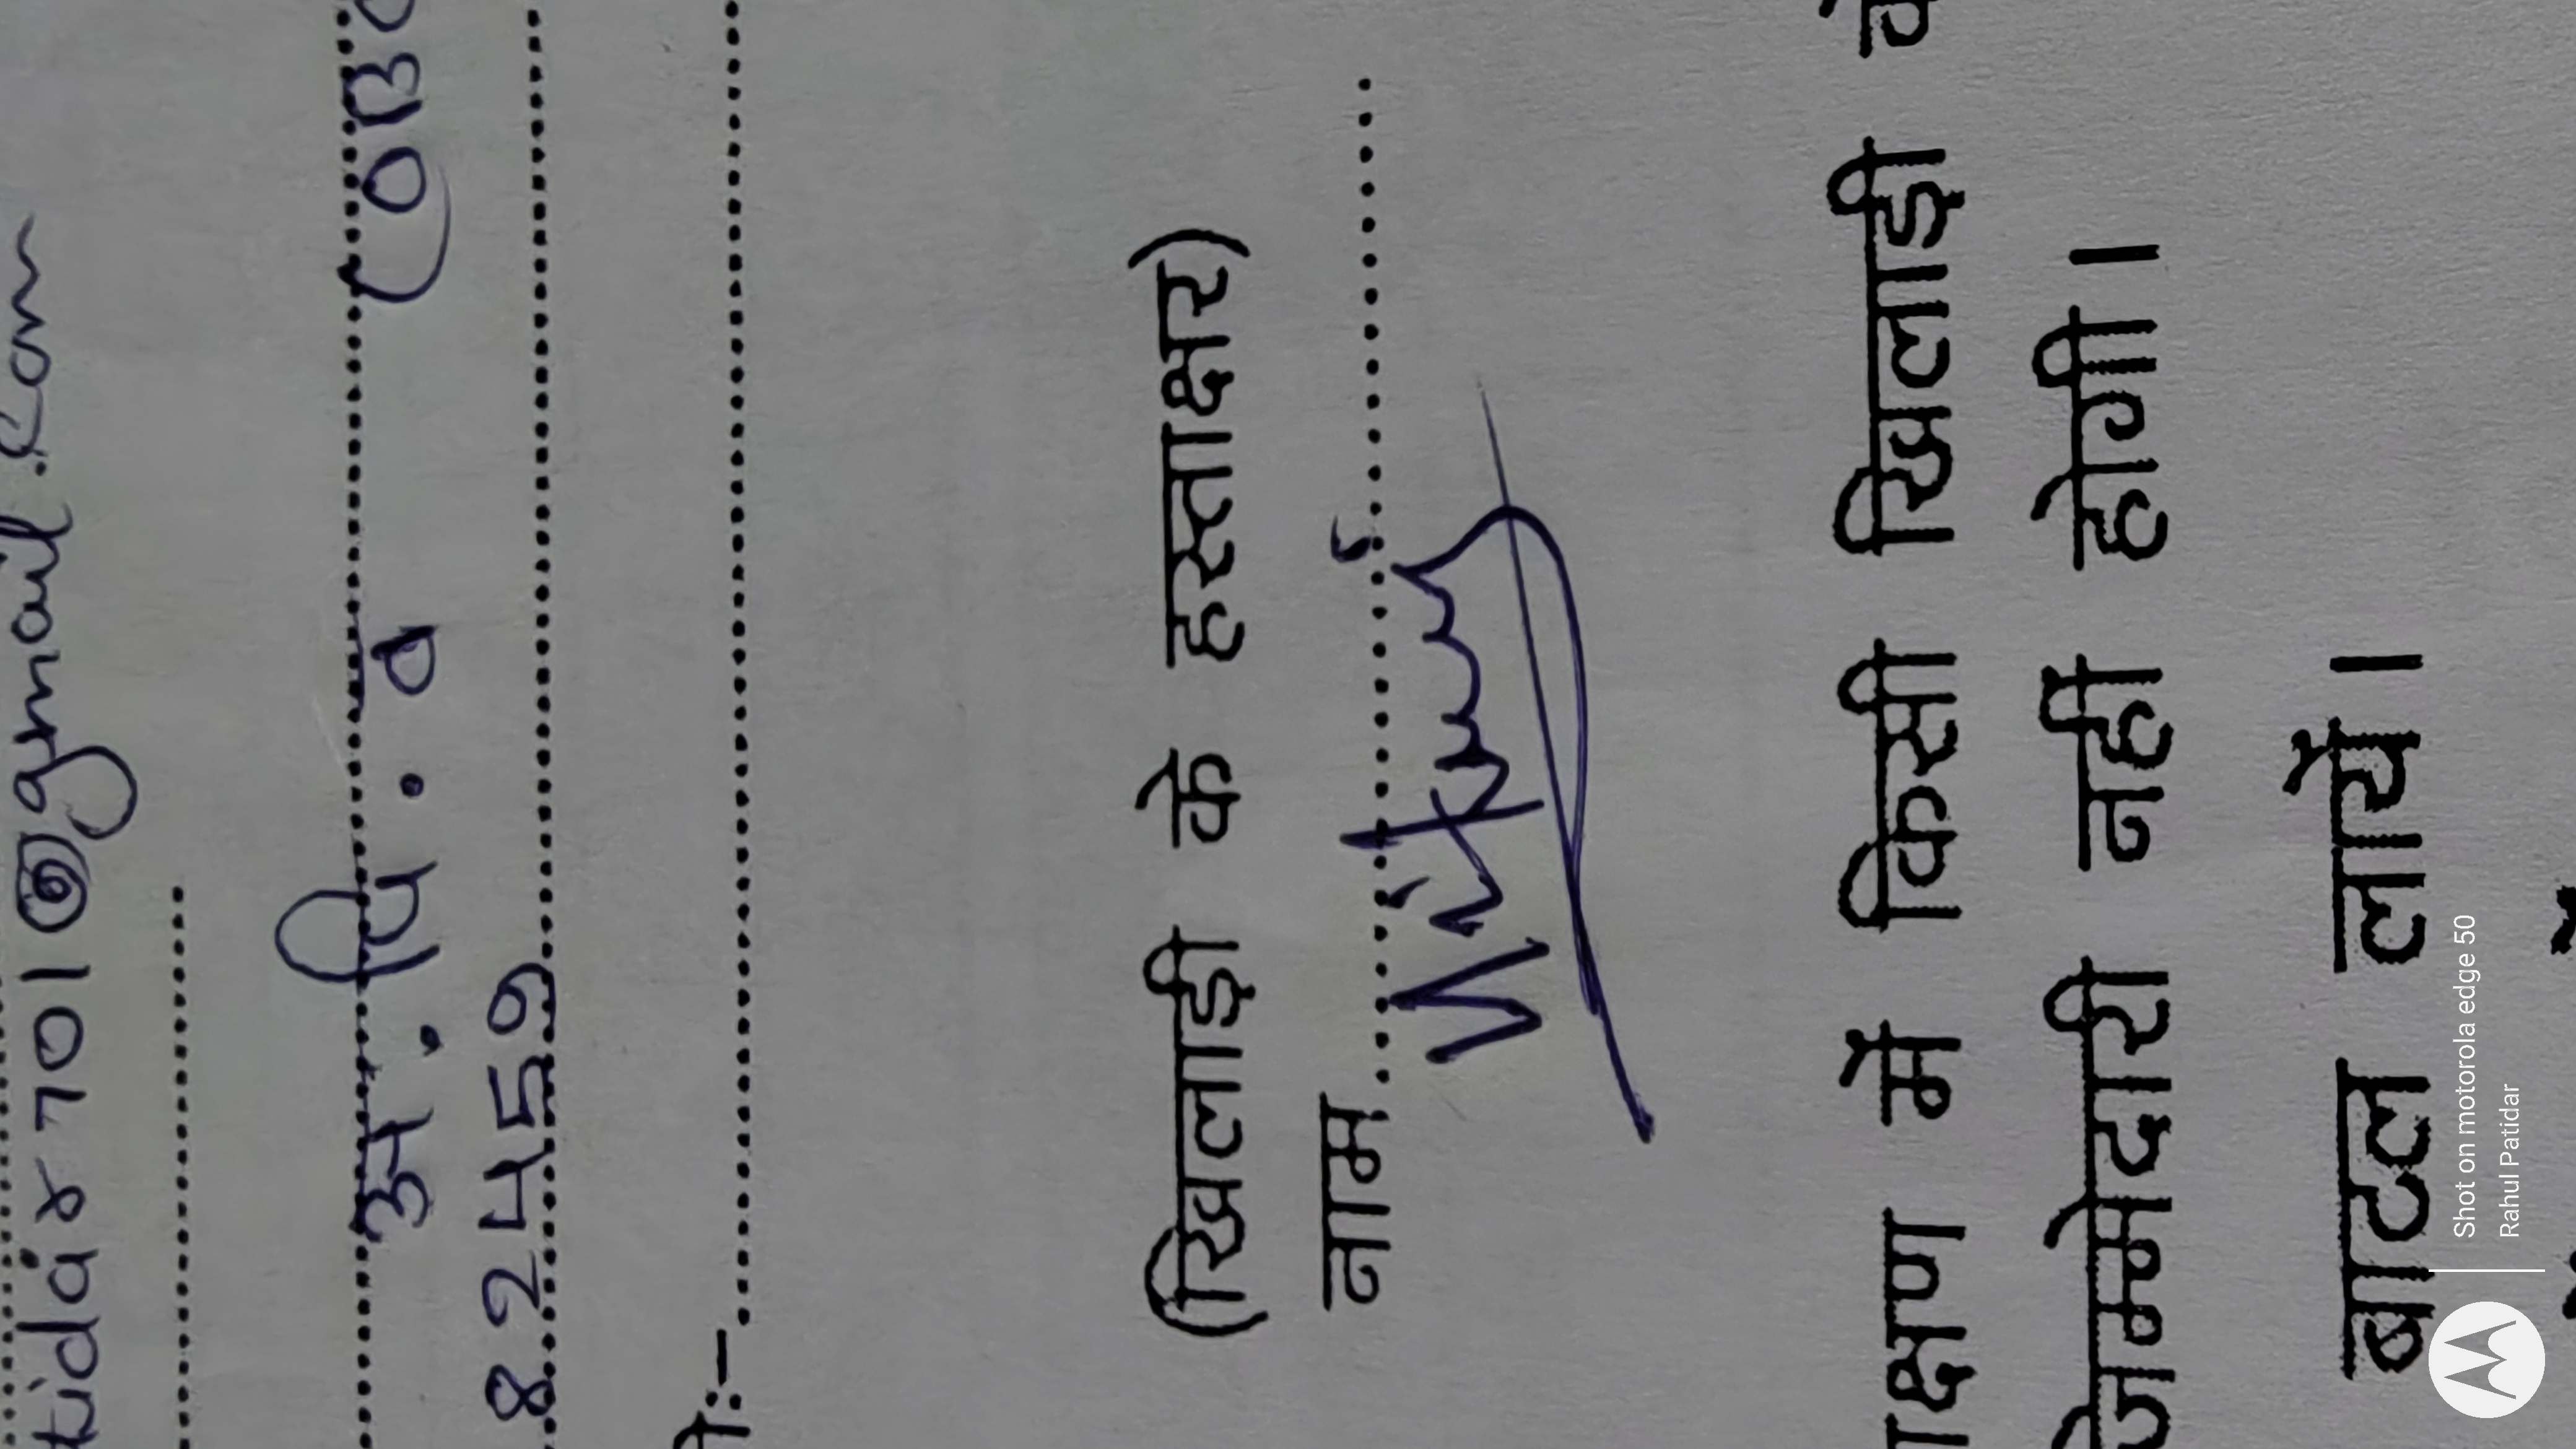 tidar701@gmail.com
अ. पि. व (OBC
82459
ने:-
(खिलाड़ी के हस्ताक्षर)
नाम
क्षण में किसी खिलाड़ी
जिम्मेदारी नही होगी।
बाटल लायें।
Shot on motorola edge 50
Rahul Patidar